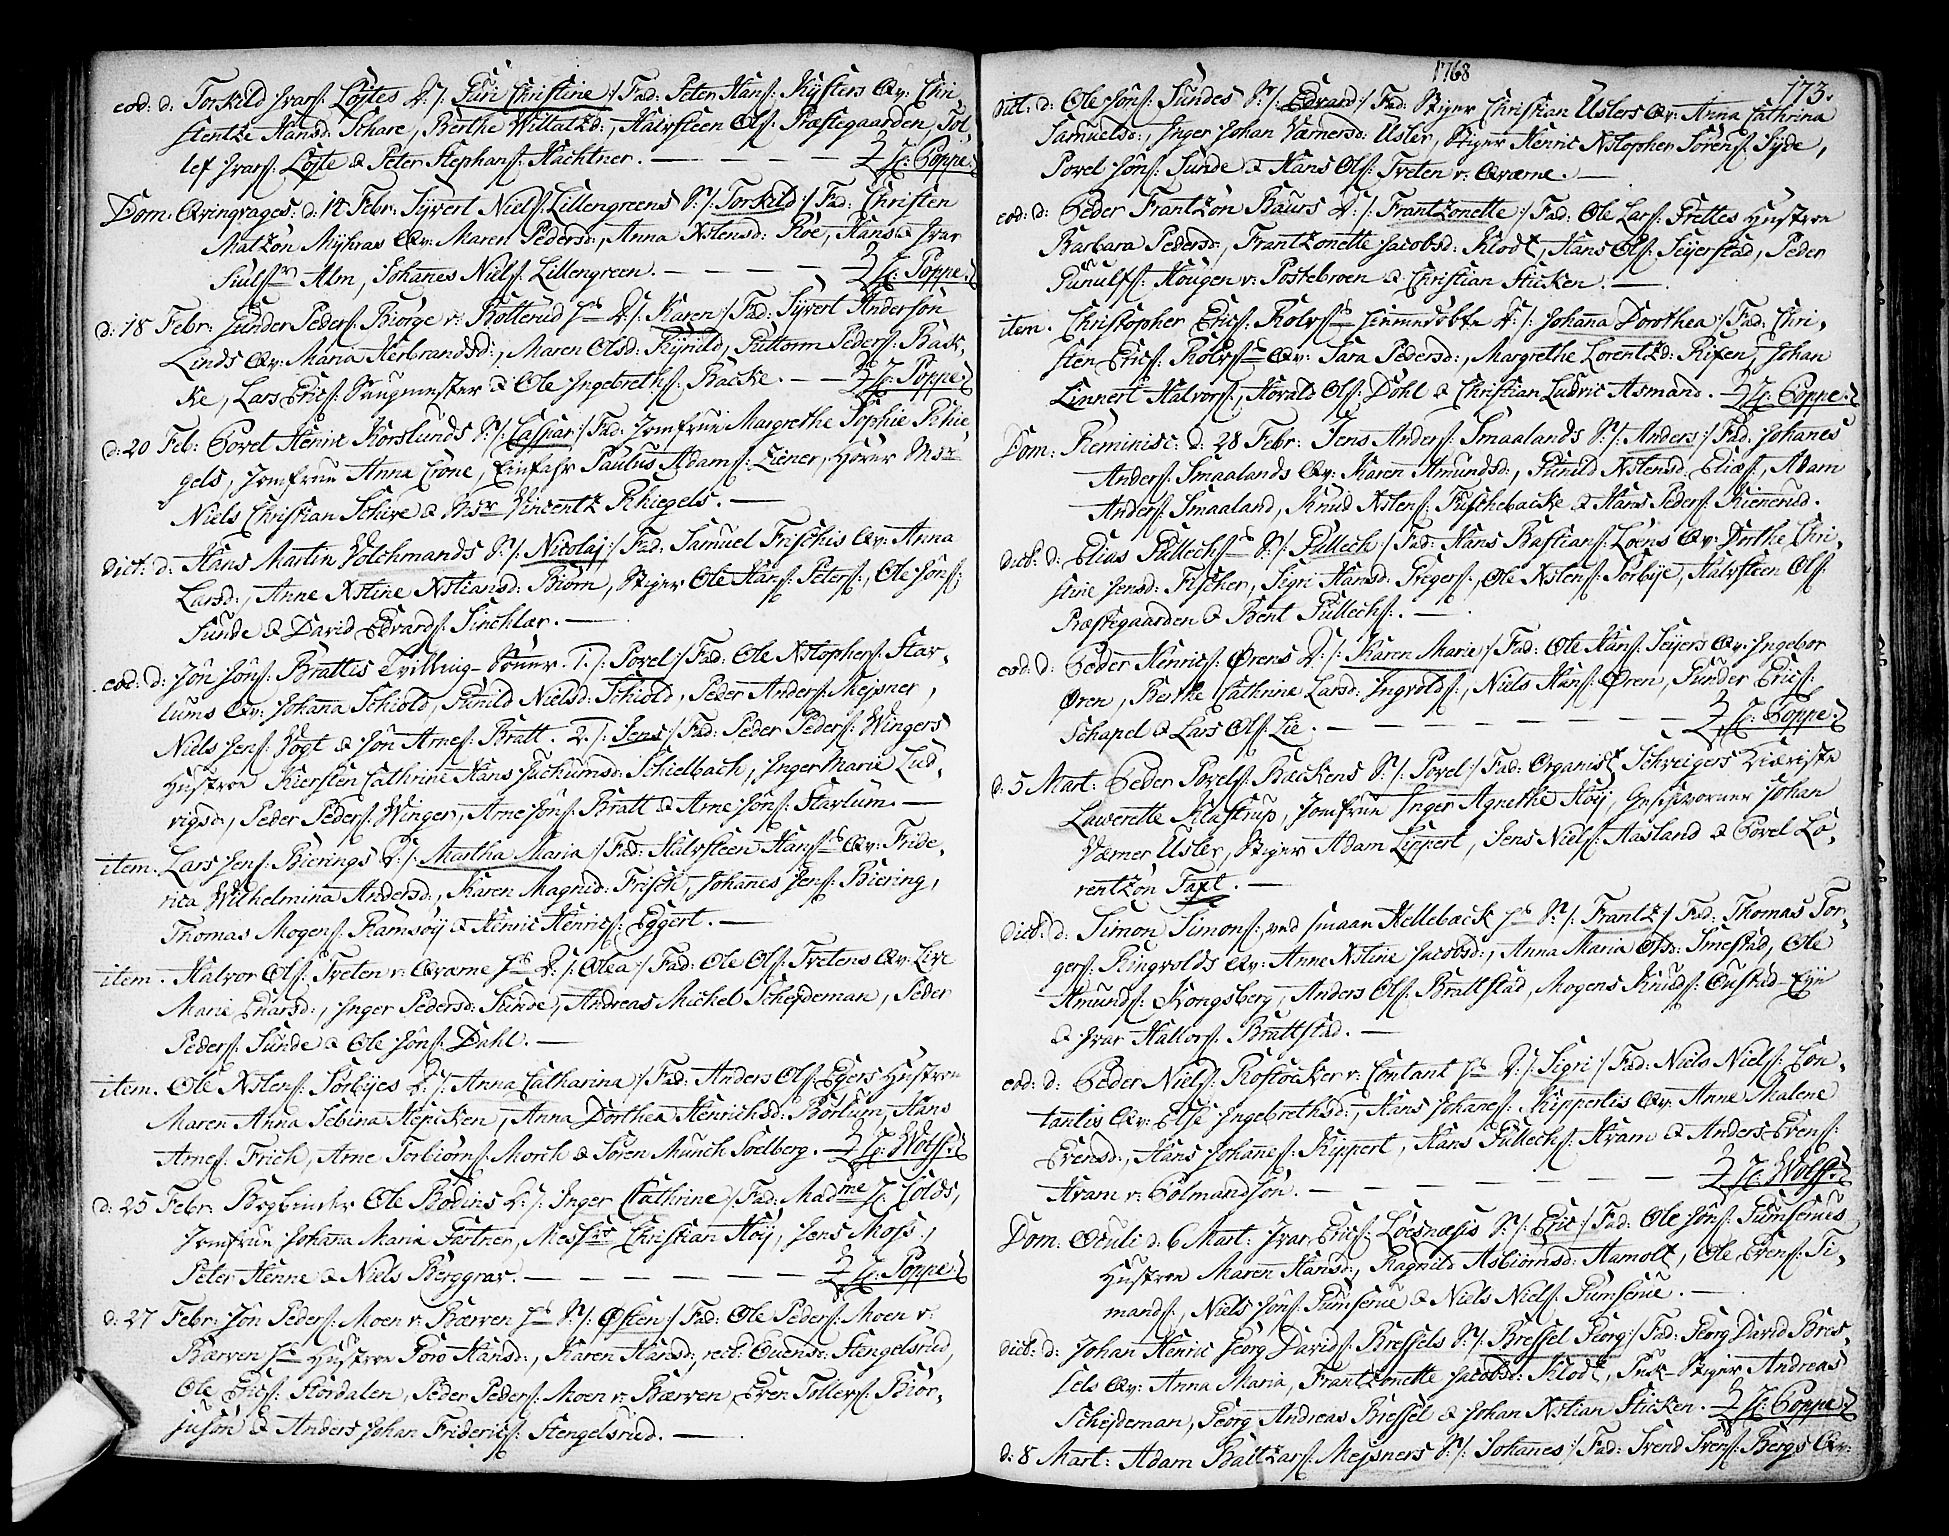 eod: d: Torkild Ivars: Löjtes D:/: Guri Christine :/ Fad: Peter Hans: Kysters Qv: Chri
stentze Hansd: Schare, Berthe Willatzd:, Halvsteen Ols: Præstegaarden, Tol-
lef Ivars: Löjte & Peter Stephans: Hachtner. — — — — Hr: Poppe.
Dom: Qvinqvages: d: 14 Febr: Syvert Niels: Lillengreens S:/: Torkild :/ Fad: Christen
Matzön Myhras Qv: Maren Pedersd:, Anna Xstensd: Roe, Hans & Ivar
Alm, Johanes Niels: Lillengreen. — — — — Hr: Poppe.
d: 18 Febr: Gunder Peders: Biörge v: Botterud D:/: Karen :/ Fad: Syvert Anderson
Linds Qv: Maria Herbrandsd:, Maren Olsd: Rynild, Guttorm Peders: Bak,
ke, Lars Erics: Saugmester & Ole Ingebreths: Backe. — — Hr: Poppe.
d: 20 Feb: Povel Henric Korslunds S:/: Caspar :/ Fad: Jomfrue Margrethe Sophie Schie
gels, Jomfrue Anna Crone, Einfahr Paulus Adams: Ziener, Hörer Msr
Niels Christian Schive & Msr Vincentz Schiegels. —
dict: d: Hans Martin Volchmands S:/: Nicolaj :/ Fad: Samuel Frischis Qv: Anna
Larsd:, Anne Xstine Xstiansd: Biörn, Stiger Ole Hans: Peters:, Ole Jöns:
Sunde & David Edvards: Sinchlar. —
eod: d: Jön Jöns: Brattis Tvilling-Sönner. 1./: Povel :/ Fad: Ole Xstophers: Star-
lums Qv: Johana Schiold, Gunild Nielsd: Schiold, Peder Anders: Mejsner,
Niels Jens: Vogt & Jön Arnes: Bratt. 2./: Jens :/ Fad: Peder Peders: Wingers
Hustroe Kiersten Cathrine Hans Jochumsd: Schielbach, Inger Marie Lud-
vigsd:, Peder Peders: Winger, Arne Jöns: Bratt & Arne Jöns: Starlum. —
item. Lars Jens: Bierings D:/: Martha Maria :/ Fad: Halvsteen Hans: Qv: Fride-
rica Wilhelmina Andersd:, Karen Magnid: Frisch, Johanes Jens: Biering,
Thomas Mogens: Ramsöy & Henric Henrics: Eggert. —
item. Halvor Ols: Tveten v: Qværne D:/: Olea :/ Fad: Ole Ols: Tvetens Qv: Live
Marie Enarsd:, Inger Pedersd: Sunde, Andreas Mickel Schejdeman, Peder
Peders: Sunde & Ole Jöns: Dahl. —
item. Ole Xstens: Sörbyes D:/: Anna Catharina :/ Fad: Anders Ols: Egers Hustroe
Maren Anna Sebina Hepicken, Anna Dorthea Henrichsd: Rörlum, Hans
Arnes: Frich, Arne Torbiörns: Morch & Sören Munch Soelberg. — Hr: Wolff.
d: 25 Febr: Ole Bödins D:/: Inger Cathrine :/ Fad: Madme Colds,
Jomfrue Johana Maria Fartner, Messrs Christian Höy, Jens Moss,
Peter Henne & Niels Berggrav. — — — — — — Hr: Poppe.
d: 27 Febr: Jön Peders: Moen v: Bærven S:/: Østen :/ Fad: Ole Peders: Moen v:
Bærven Hustroe Goro Hansd:, Karen Hansd:, rect: Evensd: Stengelsrud,
Ole Erics: Stordalen, Peder Peders: Moen v: Bærven, Even Tollevs: Biör-
jusön & Anders Johan Friderics: Stengelsrud. —
1768
173.
dict: d: Ole Jöns: Sundes S:/: Edvard :/ Fad: Stiger Christian Uslers Qv: Anna Cathrina
Samuelsd:, Inger Johan Varnersd: Usler, Stiger Henric Xstopher Sörens: Syde,
Povel Jöns: Sunde & Hans Ols: Tveten v: Qværne. —
eod: d: Peder Frantzön Baurs D:/: Frantzonette :/ Fad: Ole Lars: Frettes Hustroe
Barbara Pedersd:, Frantzonette Jacobsd: Klodt, Hans Ols: Sejerstad, Peder
Gunulfs: Hougen v: Postebroen & Christian Sticken. —
item. Christopher Erics: Rolvs: hiemedöbte D:/: Johana Dorothea :/ Fad: Chri-
sten Erics: Rolvs: Qv: Sara Pedersd:, Margrethe Lorentzd: Risen, Johan
Linnert Halvors:, Harald Ols: Döhl & Christian Ludvic Asmand. Hr: Poppe.
Dom: Reminisc: d: 28 Febr: Jens Anders: Smaalands S:/: Anders :/ Fad: Johanes
Anders: Smaalands Qv: Karen Amundsd:, Gunild Xstensd: Eliæs:, Adam
Anders: Smaaland, Knud Xstens: Fuschebacke & Hans Peders: Kienerud.
dict: d: Elias Gullechs: S:/: Gullech :/ Fad: Hans Bastians: Löens Qv: Dorthe Chri-
stine Jensd: Fischer, Sigri Hansd: Gregers:, Ole Xstens: Sörbye, Halvsteen Ols:
Præstegaarden & Bent Gullechs:. —
eod: d: Peder Henrics: Örens D:/: Karen Marie :/ Fad: Ole Hans: Seyers Qv: Ingebor
Ören, Berthe Cathrine Larsd: Ingvolds:, Niels Hans: Ören, Gunder Erics:
Schapel & Lars Ols: Lie. — — — — — — — Hr: Poppe.
d: 5 Mart: Peder Povels: Backens S:/: Povel :/ Fad: Organist Schreigers Kiæriste
Lawerette Klastrup, Jomfrue Inger Agnethe Höy, Geschworner Johan
Værner Usler, Stiger Adam Lippert, Jens Niels: Aasland & Povel Lo-
rentzön Taft. —
dict: d: Simon Simons: ved smaae Hellebæck S:/: Frantz :/ Fad: Thomas Tor-
gers: Ringvolds Qv: Anne Xstine Jacobsd:, Anna Maria Olsd: Smestad, Ole
Amunds: Kongsberg, Anders Ols: Brattstad, Mogens Knuds: Oustad-Eye
& Ivar Hallors: Brattstad. —
eod: d: Peder Niels: Rostöcker v: Contant D:/: Sigri :/ Fad: Niels Niels: Con-
tantis Qv: Else Ingebrethsd:, Hans Johanes: Kippertiis Qv: Anne Malene
Evensd:, Hans Johanes: Kippert, Hans Gullechs: Kram & Anders Evens:
Kram v: Colmandsön. — — — — — — — Hr: Wolff.
Dom: Oculi d: 6 Mart: Ivar Erics: Loesnæsis S:/: Eric :/ Fad: Ole Jöns: Gumserues
Hustroe Maren Hansd:, Ragnild Asbiörnsd: Hamolt, Ole Evens: Ti-
mands:, Niels Jöns: Gumserue & Niels Niels: Gumserue. —
dict: d: Johan Henric Georg Davids: Bressels S:/: Bressel Georg :/ Fad: Georg David Bres-
sels Qv: Anna Maria, Frantzonette Jacobsd: Klodt, Stiger Andreas
Schejdeman, Georg Andreas Bressel & Johan Xstian Sticken. — Hr: Poppe.
d: 8 Mart: Adam Baltzars: Mejsners S:/: Johanes :/ Fad: Svend Svens: Bergs Qv: